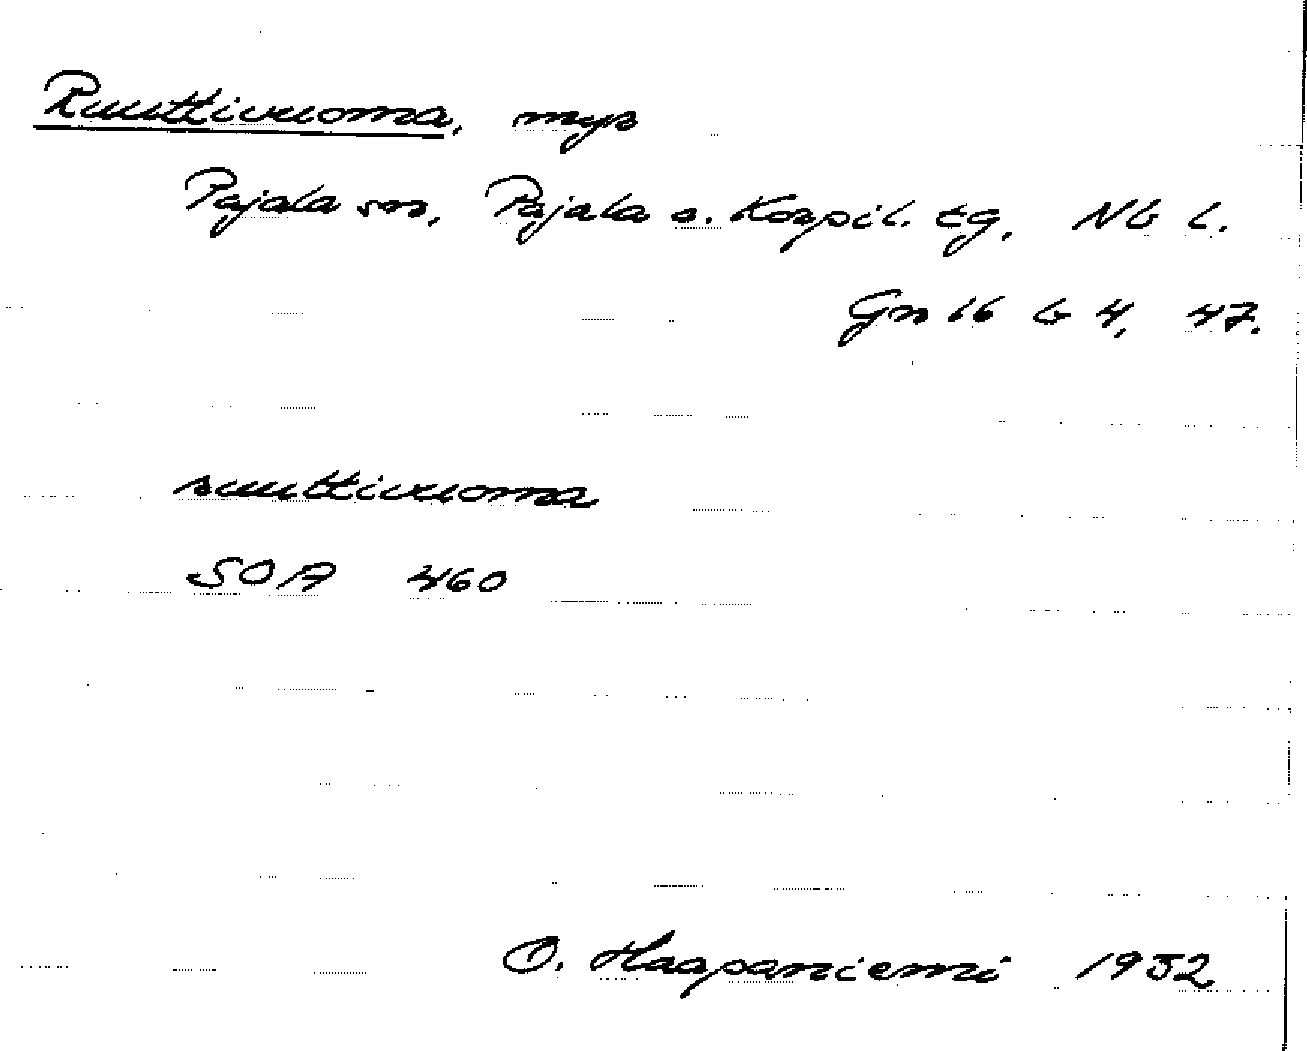 Ruuttivuoma, myr
Pajala sn, Pajala o. Korpil. tg, Nb l.
Gn 16 b 4, 47.
ruuttivuoma
SOA 460
O. Haapaniemi 1952